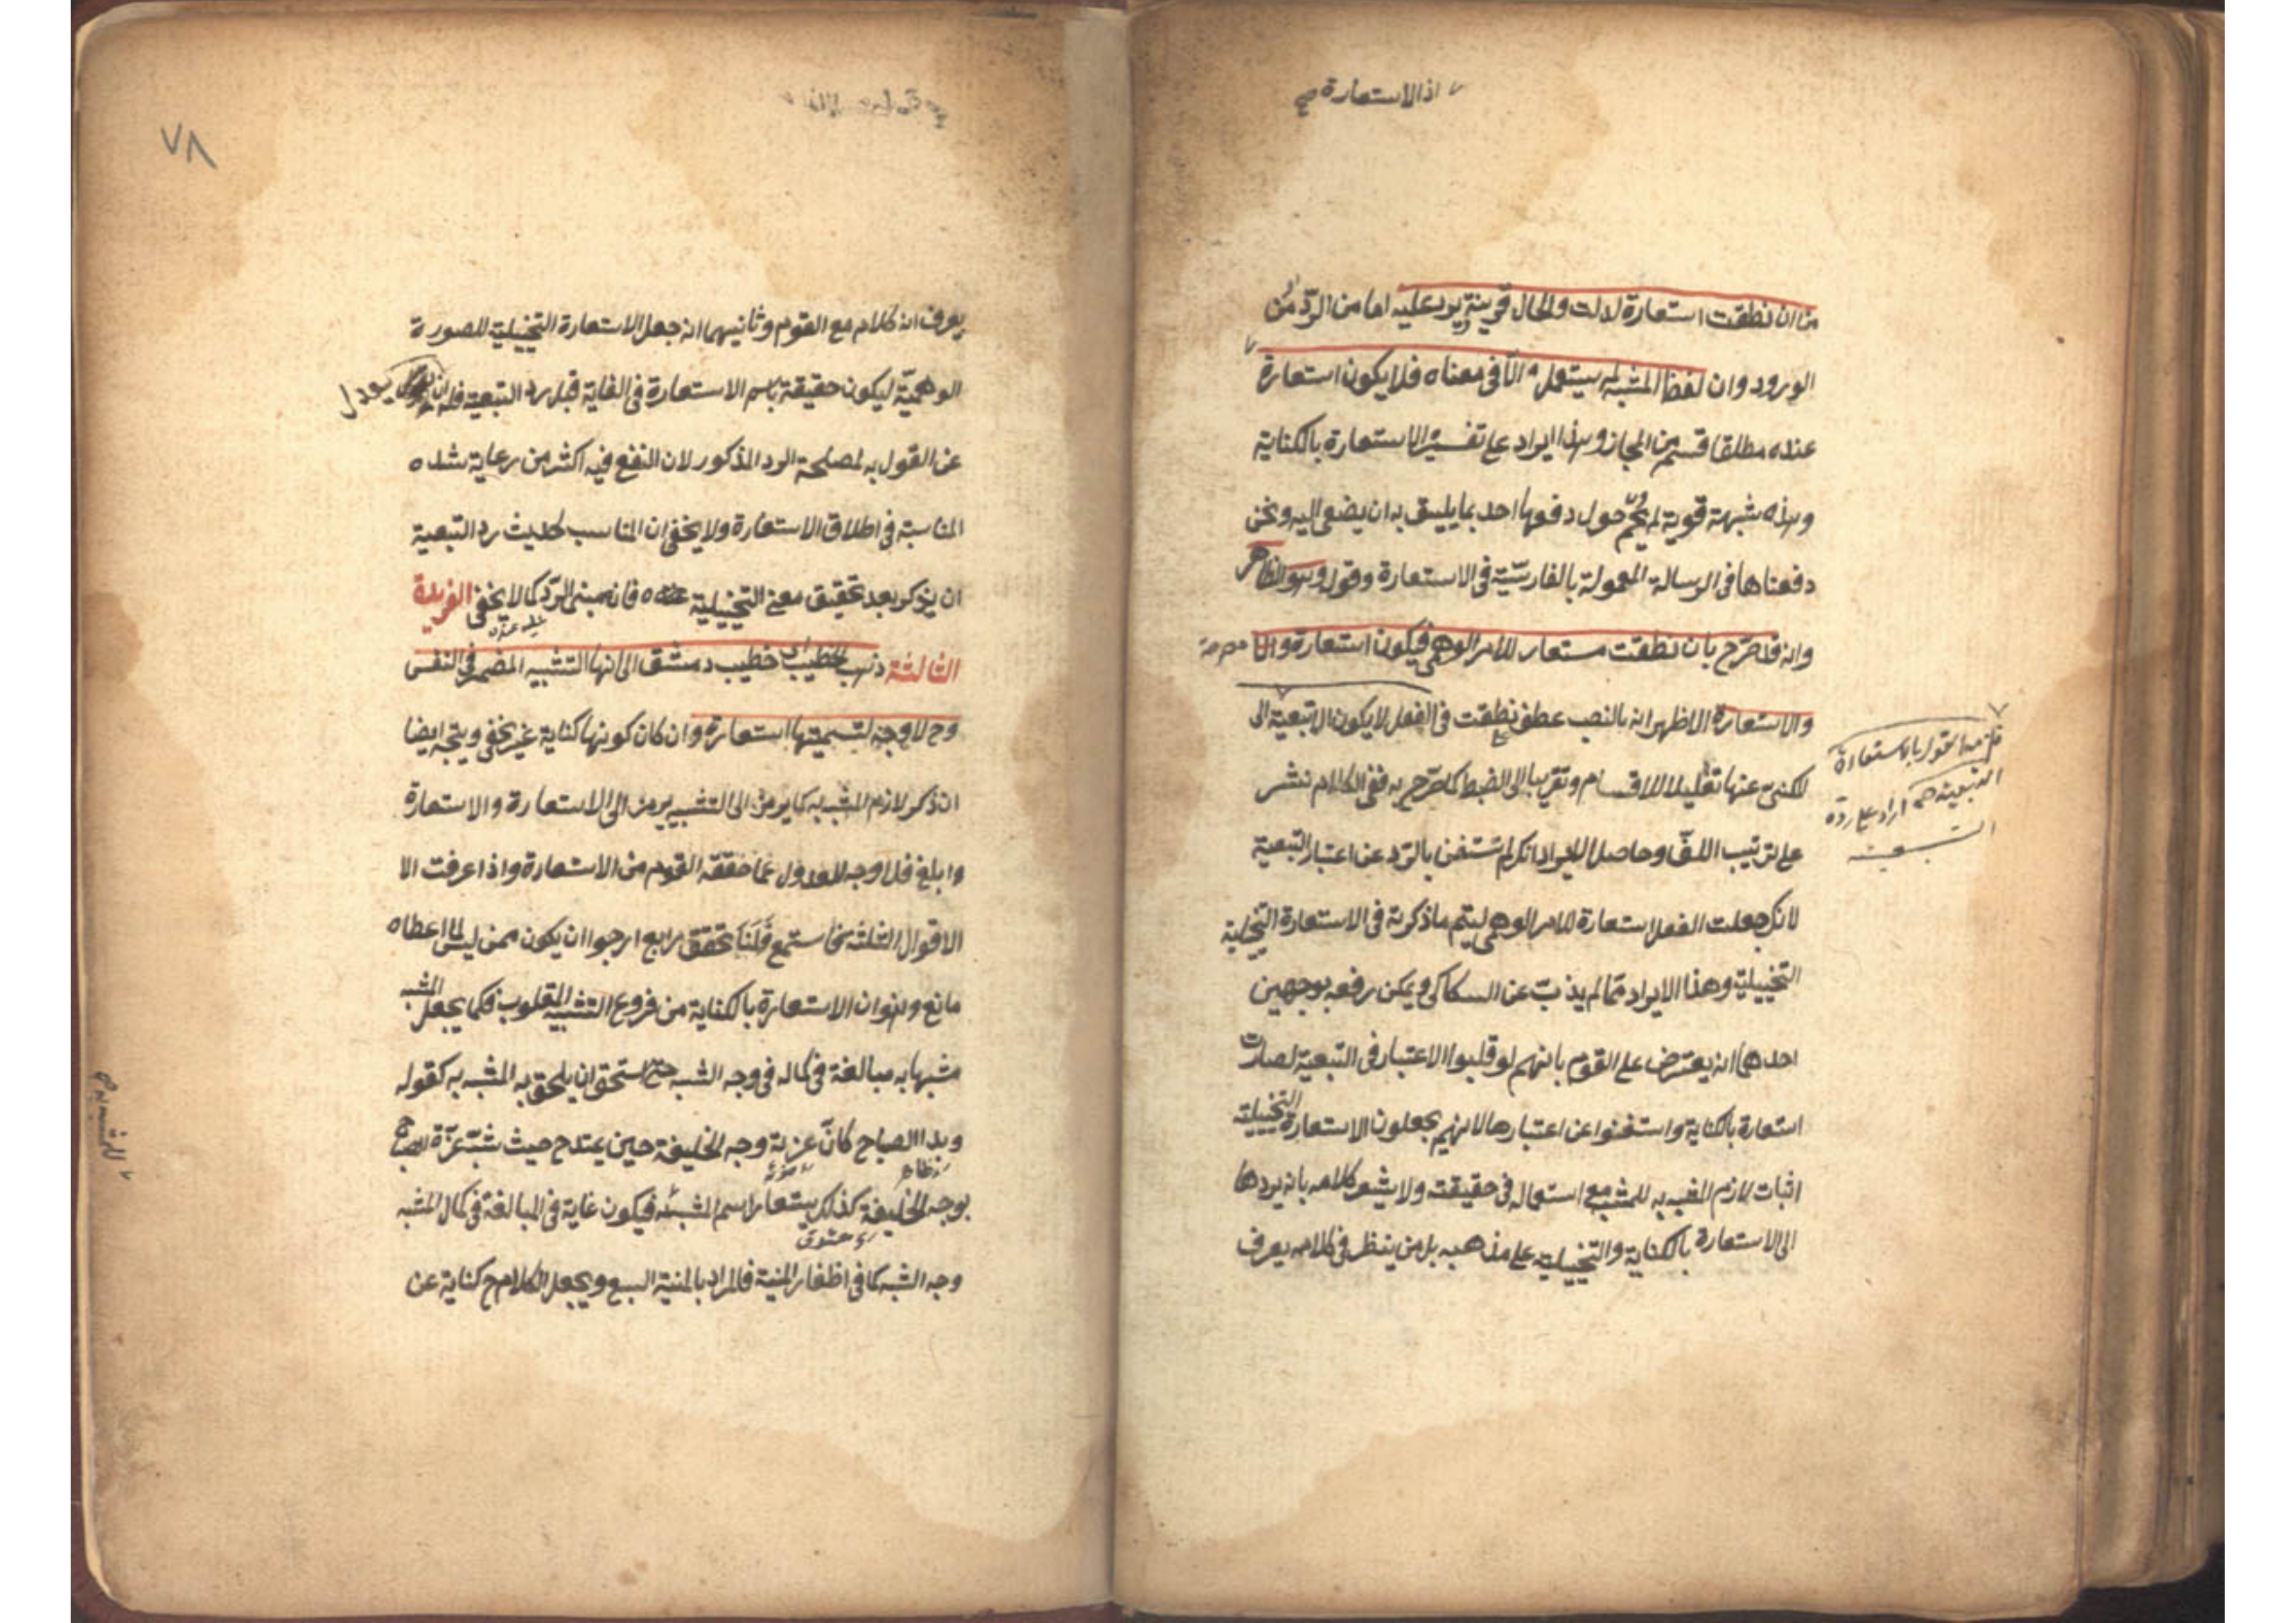 اذ الاستعارة صح
من ان نطقت استعارة لدلت والحال قرينة يرد عليه اما من الرد من
الورود وان لفظ المشبه لم يستعمل الا في معناه فلا يكون استعارة
عنده مطلقا قسم من المجاز وهذا ايراد على تفسير الاستعارة بالكناية
وهذه شبهة قوية لم يحم حول دفعها احد بما يليق به ان يضغى اليه ونحن
دفعناها في الرسالة المعمولة بالفارسية في الاستعارة وقوله وهو الظاهر
وانه قد صرح بان نطقت مستعار للامر الوهمي فيكون استعارة والا
والاستعارة الاظهر انه بالنصب عطف نطقت في الفعل لا يكون الا تبعية الى
لكني عنها تقليلا للاقسام وتقريبا الى الضبط كما صرح به ففي الكلام نشر
على ترتيب اللف وحاصل الايراد انك لم تستغن بالرد عن اعتبار التبعية
لانك جعلت الفعل استعارة للامر الوهمي ليتم ما ذكرته في الاستعارة التخيلية
التخييلية وهذا الايراد مما لم يذب عن السكاكي ويمكن رفعه بوجهين
احدهما انه يعترض على القوم بانهم لو قلبوا الاعتبار في التبعية لصارت
استعارة بالكناية واستغنوا عن اعتبارها لانهم يجعلون الاستعارة التخييلية
اثبات لازم المشبه به للمشبه مع استعماله في حقيقته ولا يشعر كلامه بانه يردها
الى الاستعارة بالكناية والتخييلية على مذهبه بل من ينظر في كلامه يعرف
فلزمه القول بالاستعارة
التبعية
التبعية
٧٨
يعرف انه كلام مع القوم وثانيهما انه جعل الاستعارة التخييلية للصورة
الوهمية ليكون حقيقة باسم الاستعارة في الغاية قبل رد التبعية فله ان يعدل
عن القول به لمصلحة الرد المذكور لان النفع فيه اكثر من رعاية شده
المناسبة في اطلاق الاستعارة ولا يخفى ان المناسب لحديث رد التبعية
ان يذكر بعد تحقيق معنى التخييلية عنده فانه مبنى الرد كما لا يخفى الفريدة
الثالثة ذهب الخطيب اي خطيب دمشق الى انها التشبيه المضمر في النفس
وح لا وجه لتسميتها استعارة وان كان كونها كناية غير يخفى ويتجه ايضا
ان ذكر لازم المشبه به كما يرمز الى التشبيه يرمز الى الاستعارة والاستعارة
وابلغ فلا وجه للعدول عما حققه القوم من الاستعارة واذا عرفت الا
الاقوال الثلثة فاستمع فلنا تحقق رابع ارجوا ان يكون ممن ليس لما اعطاه
مانع وهو ان الاستعارة بالكناية من فروع التشبيه المقلوب فكما يجعل المشبه
مشبها به مبالغة في كماله في وجه الشبه حتى استحق ان يلحق به المشبه به كقوله
وبدا الصباح كان غرته وجه الخليفة حين يمتدح حيث شبه غرة الصباح
بوجه الخليفة كذلك يستعار اسم المشبه فيكون غاية في المبالغة في كمال المشبه
وجه الشبه كما في اظفار المنية فالمراد بالمنية السبع ويجعل الكلام ح كناية عن